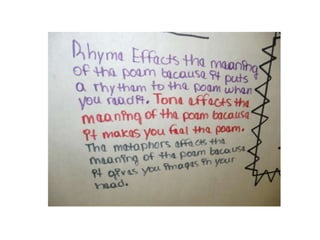 Rhyme Effects the meaning
of the poam because it puts
a rhythem to the poam when
you readit. Tone affects the
meaning of the poam because
it makes you feel the poam.
The metaphors affects the
meaning of the poam because
it gives you images in your
head.